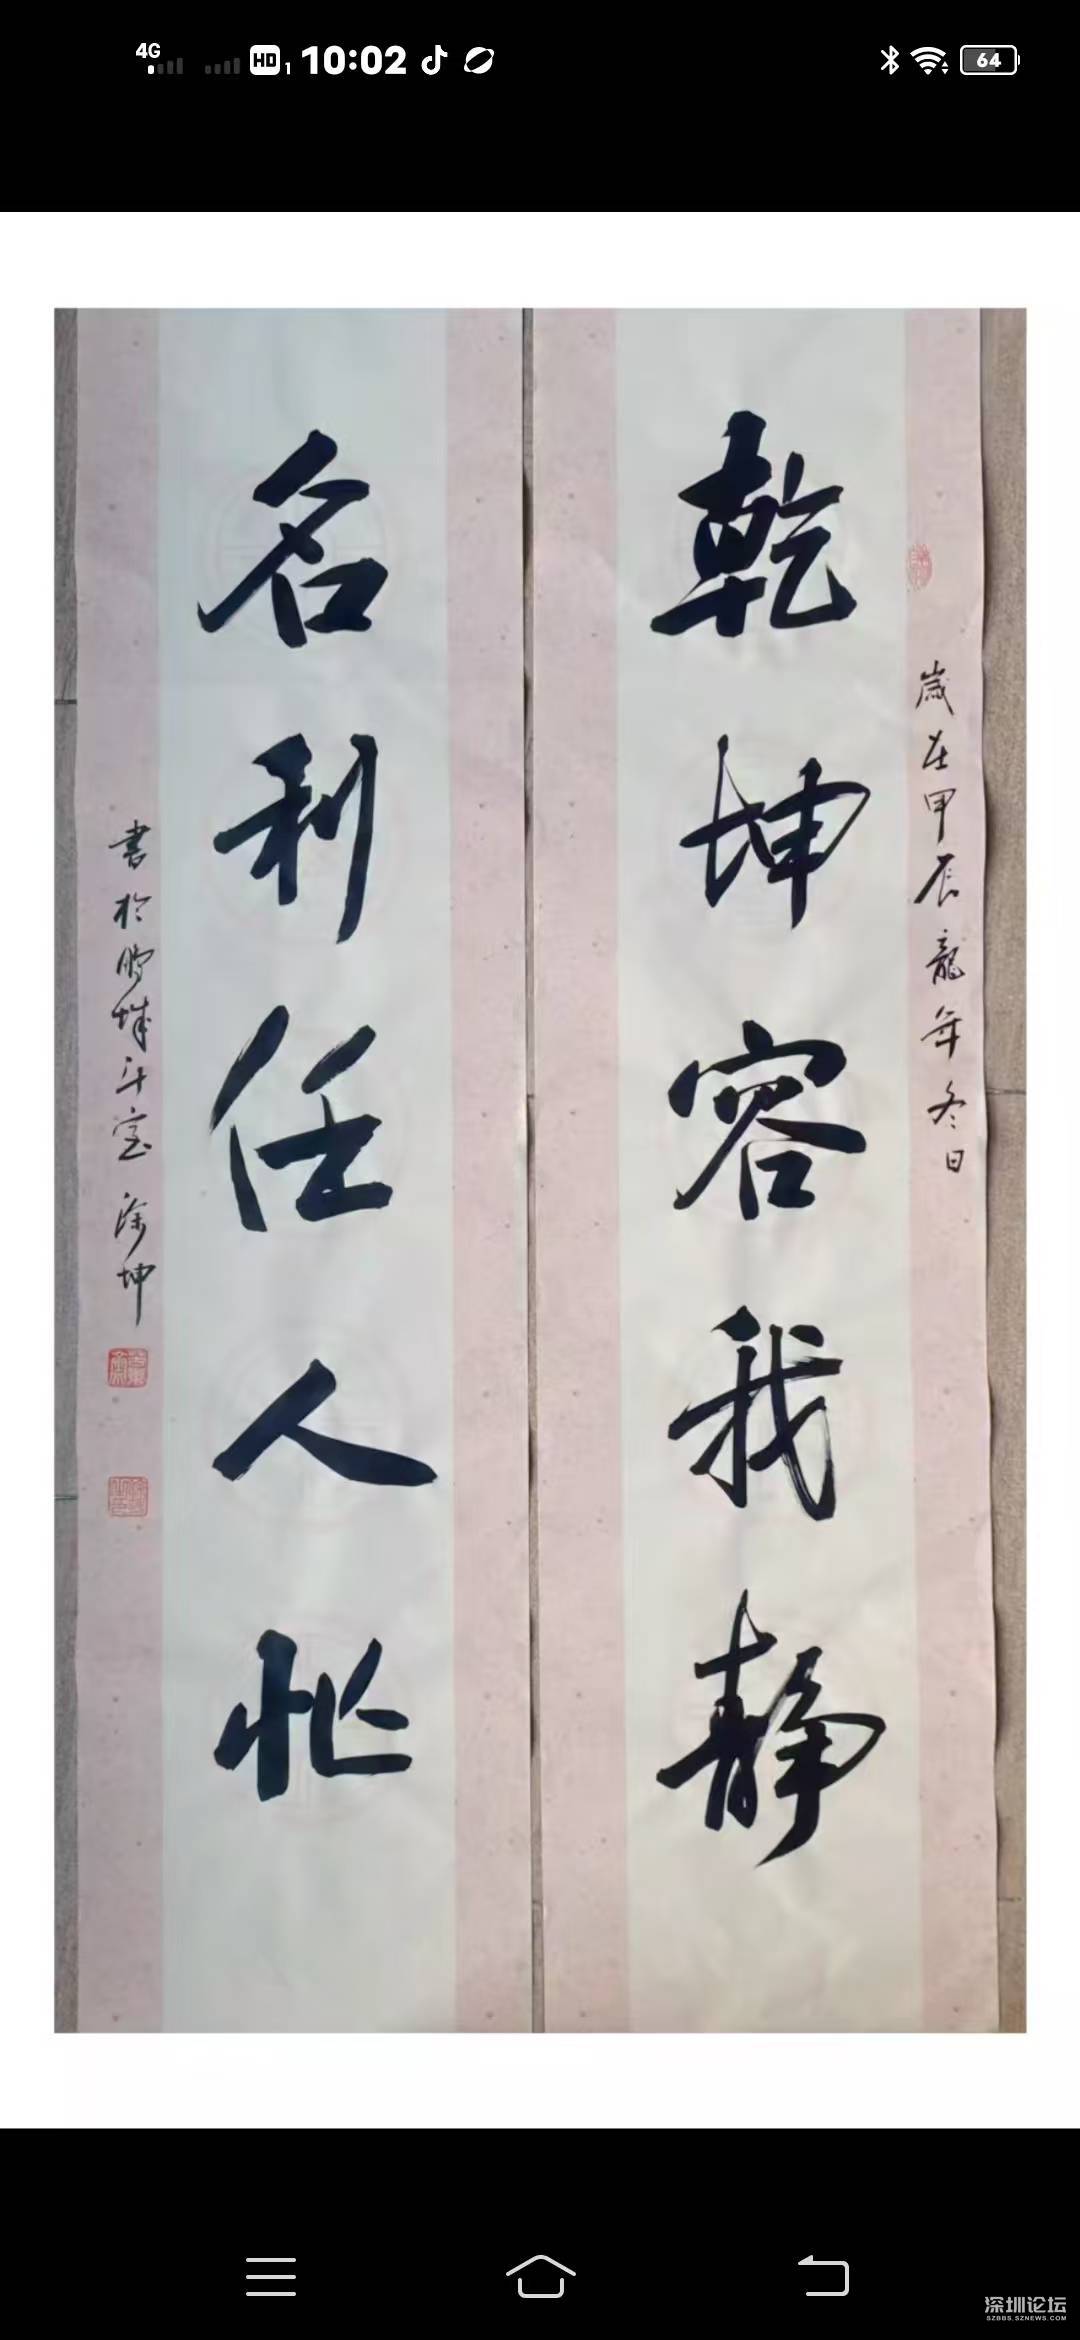 4G HD 1 10:02 64
歲在甲辰龍年冬日
乾坤容我靜
名利任人忙
書於鵬城斗室 徐坤
深圳论坛
SZBBS.SZNEWS.COM